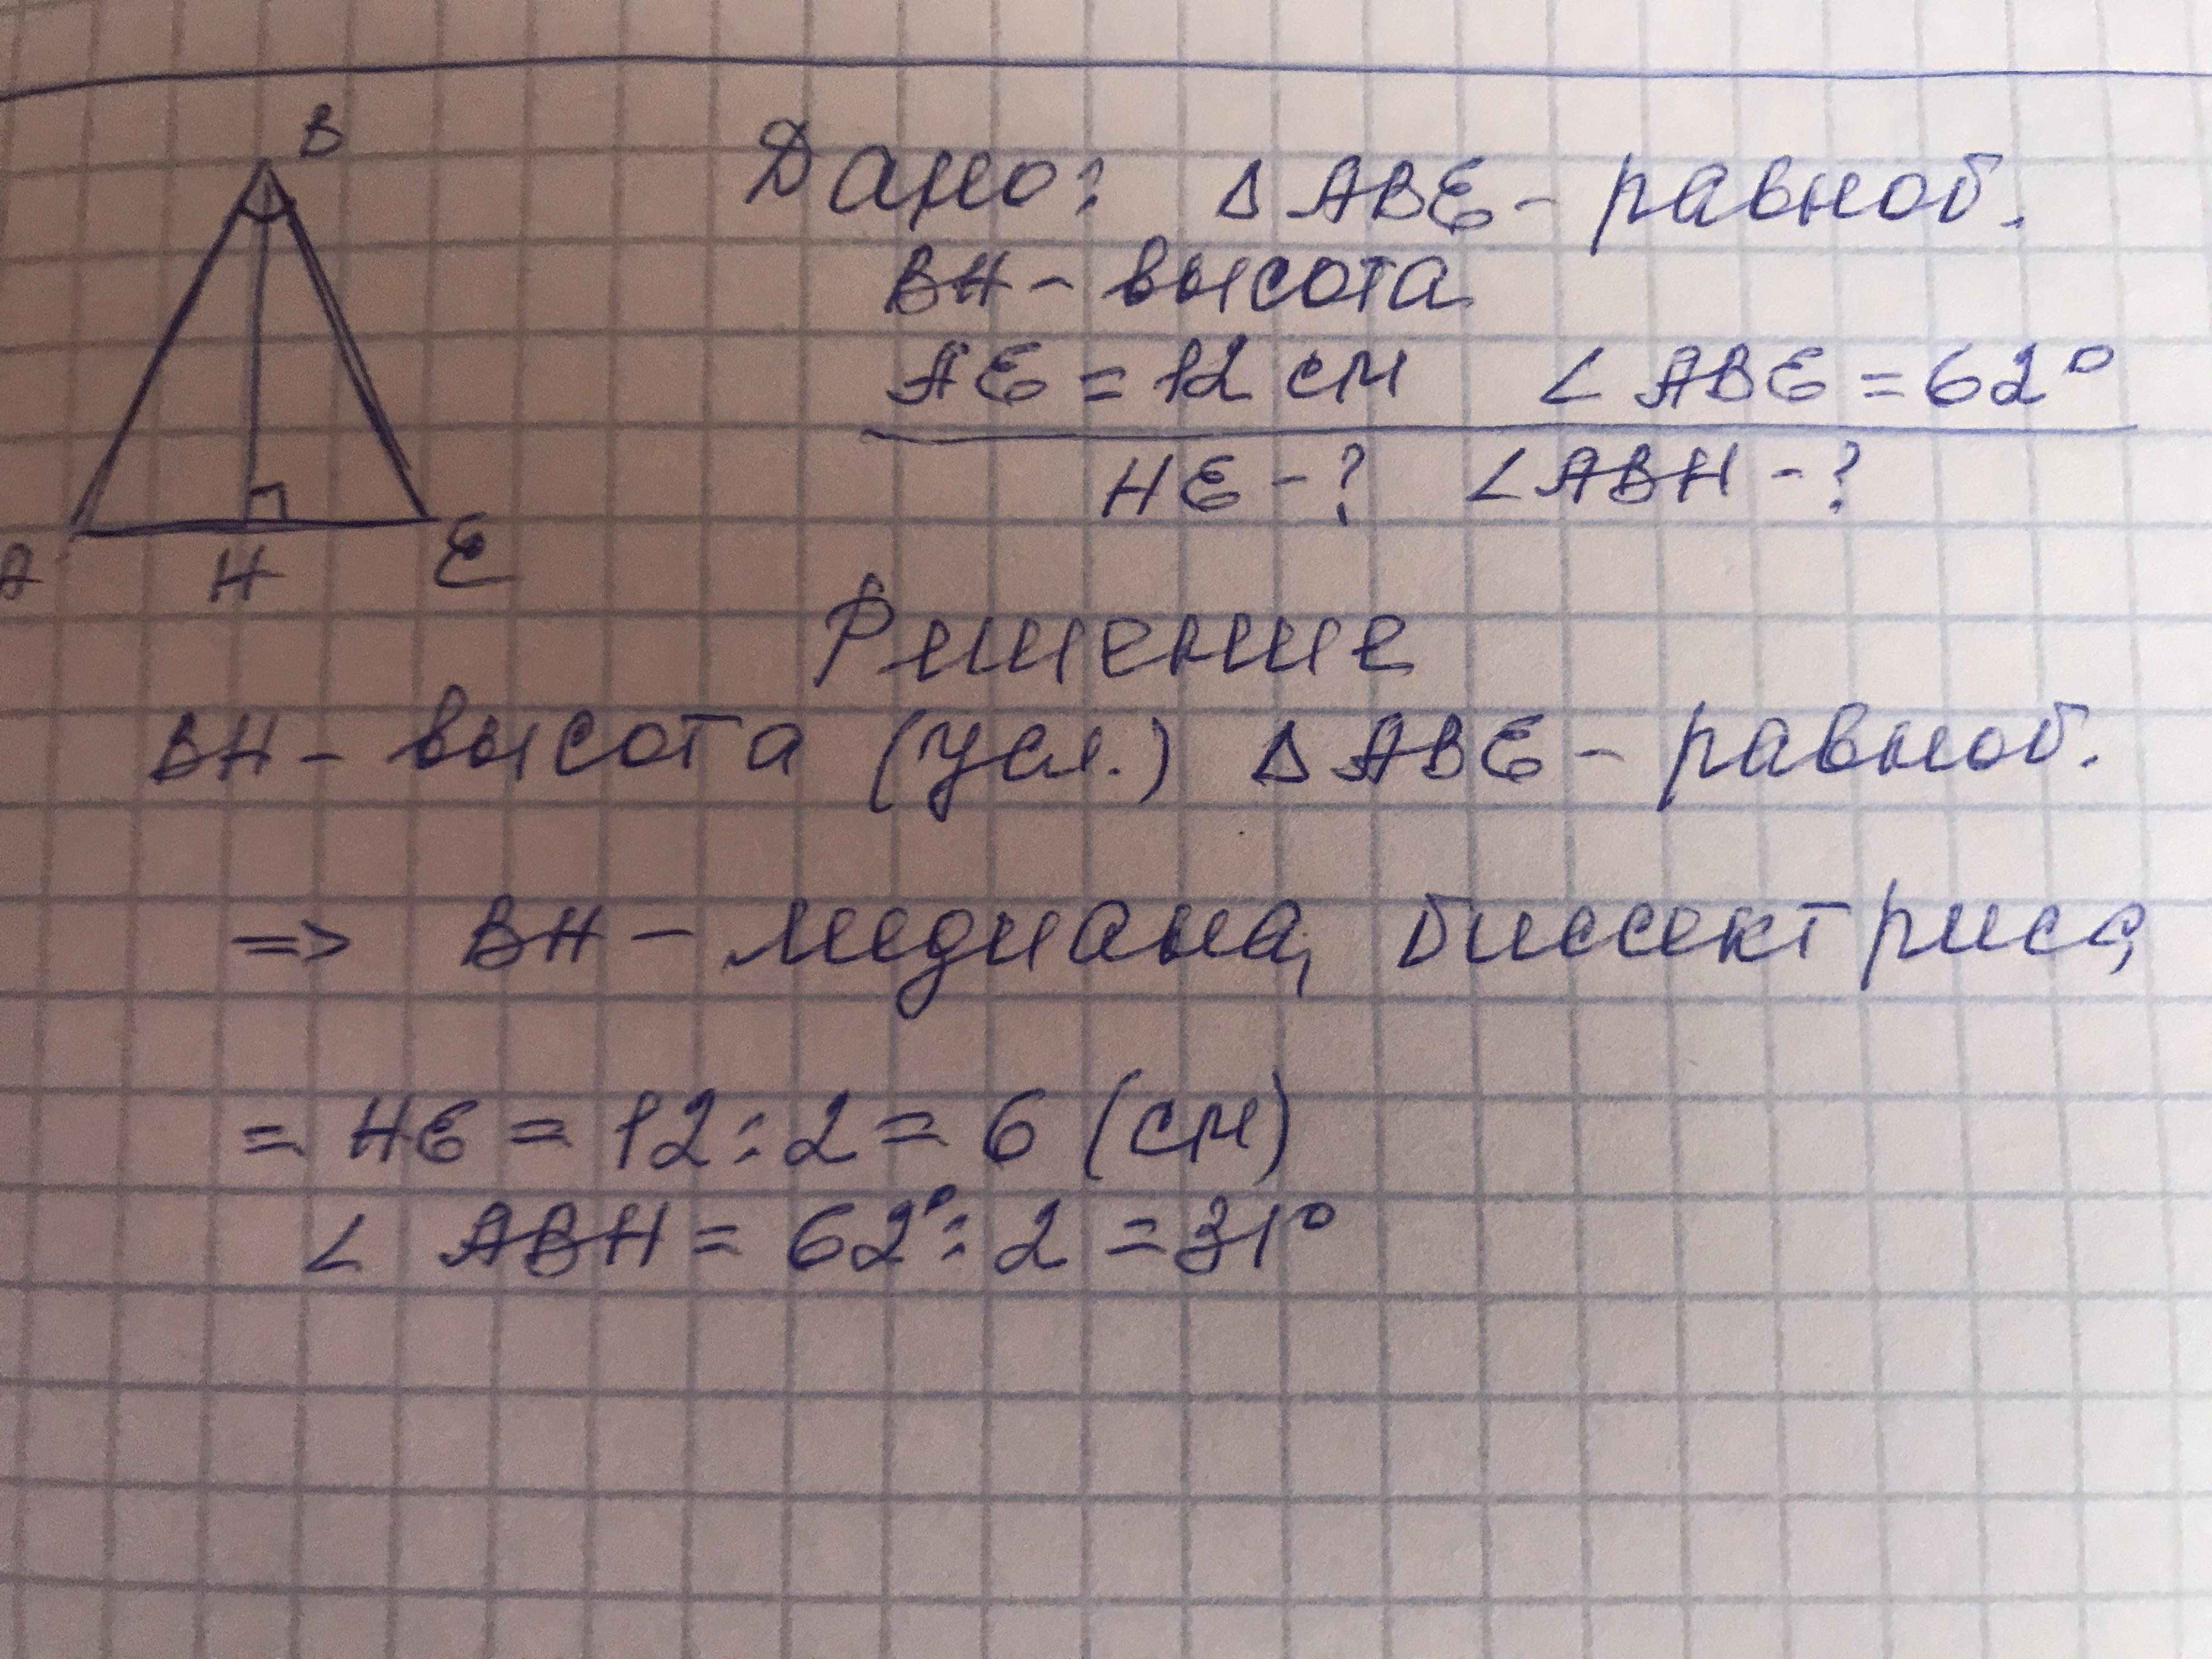 B
A H E
Дано: Δ ABE - равноб.
BH - высота
AE = 12 см ∠ ABE = 62°
HE - ? ∠ABH - ?
Решение
BH - высота (усл.) Δ ABE - равноб.
=> BH - медиана, биссектриса,
= HE = 12 : 2 = 6 (см)
∠ ABH = 62° : 2 = 31°